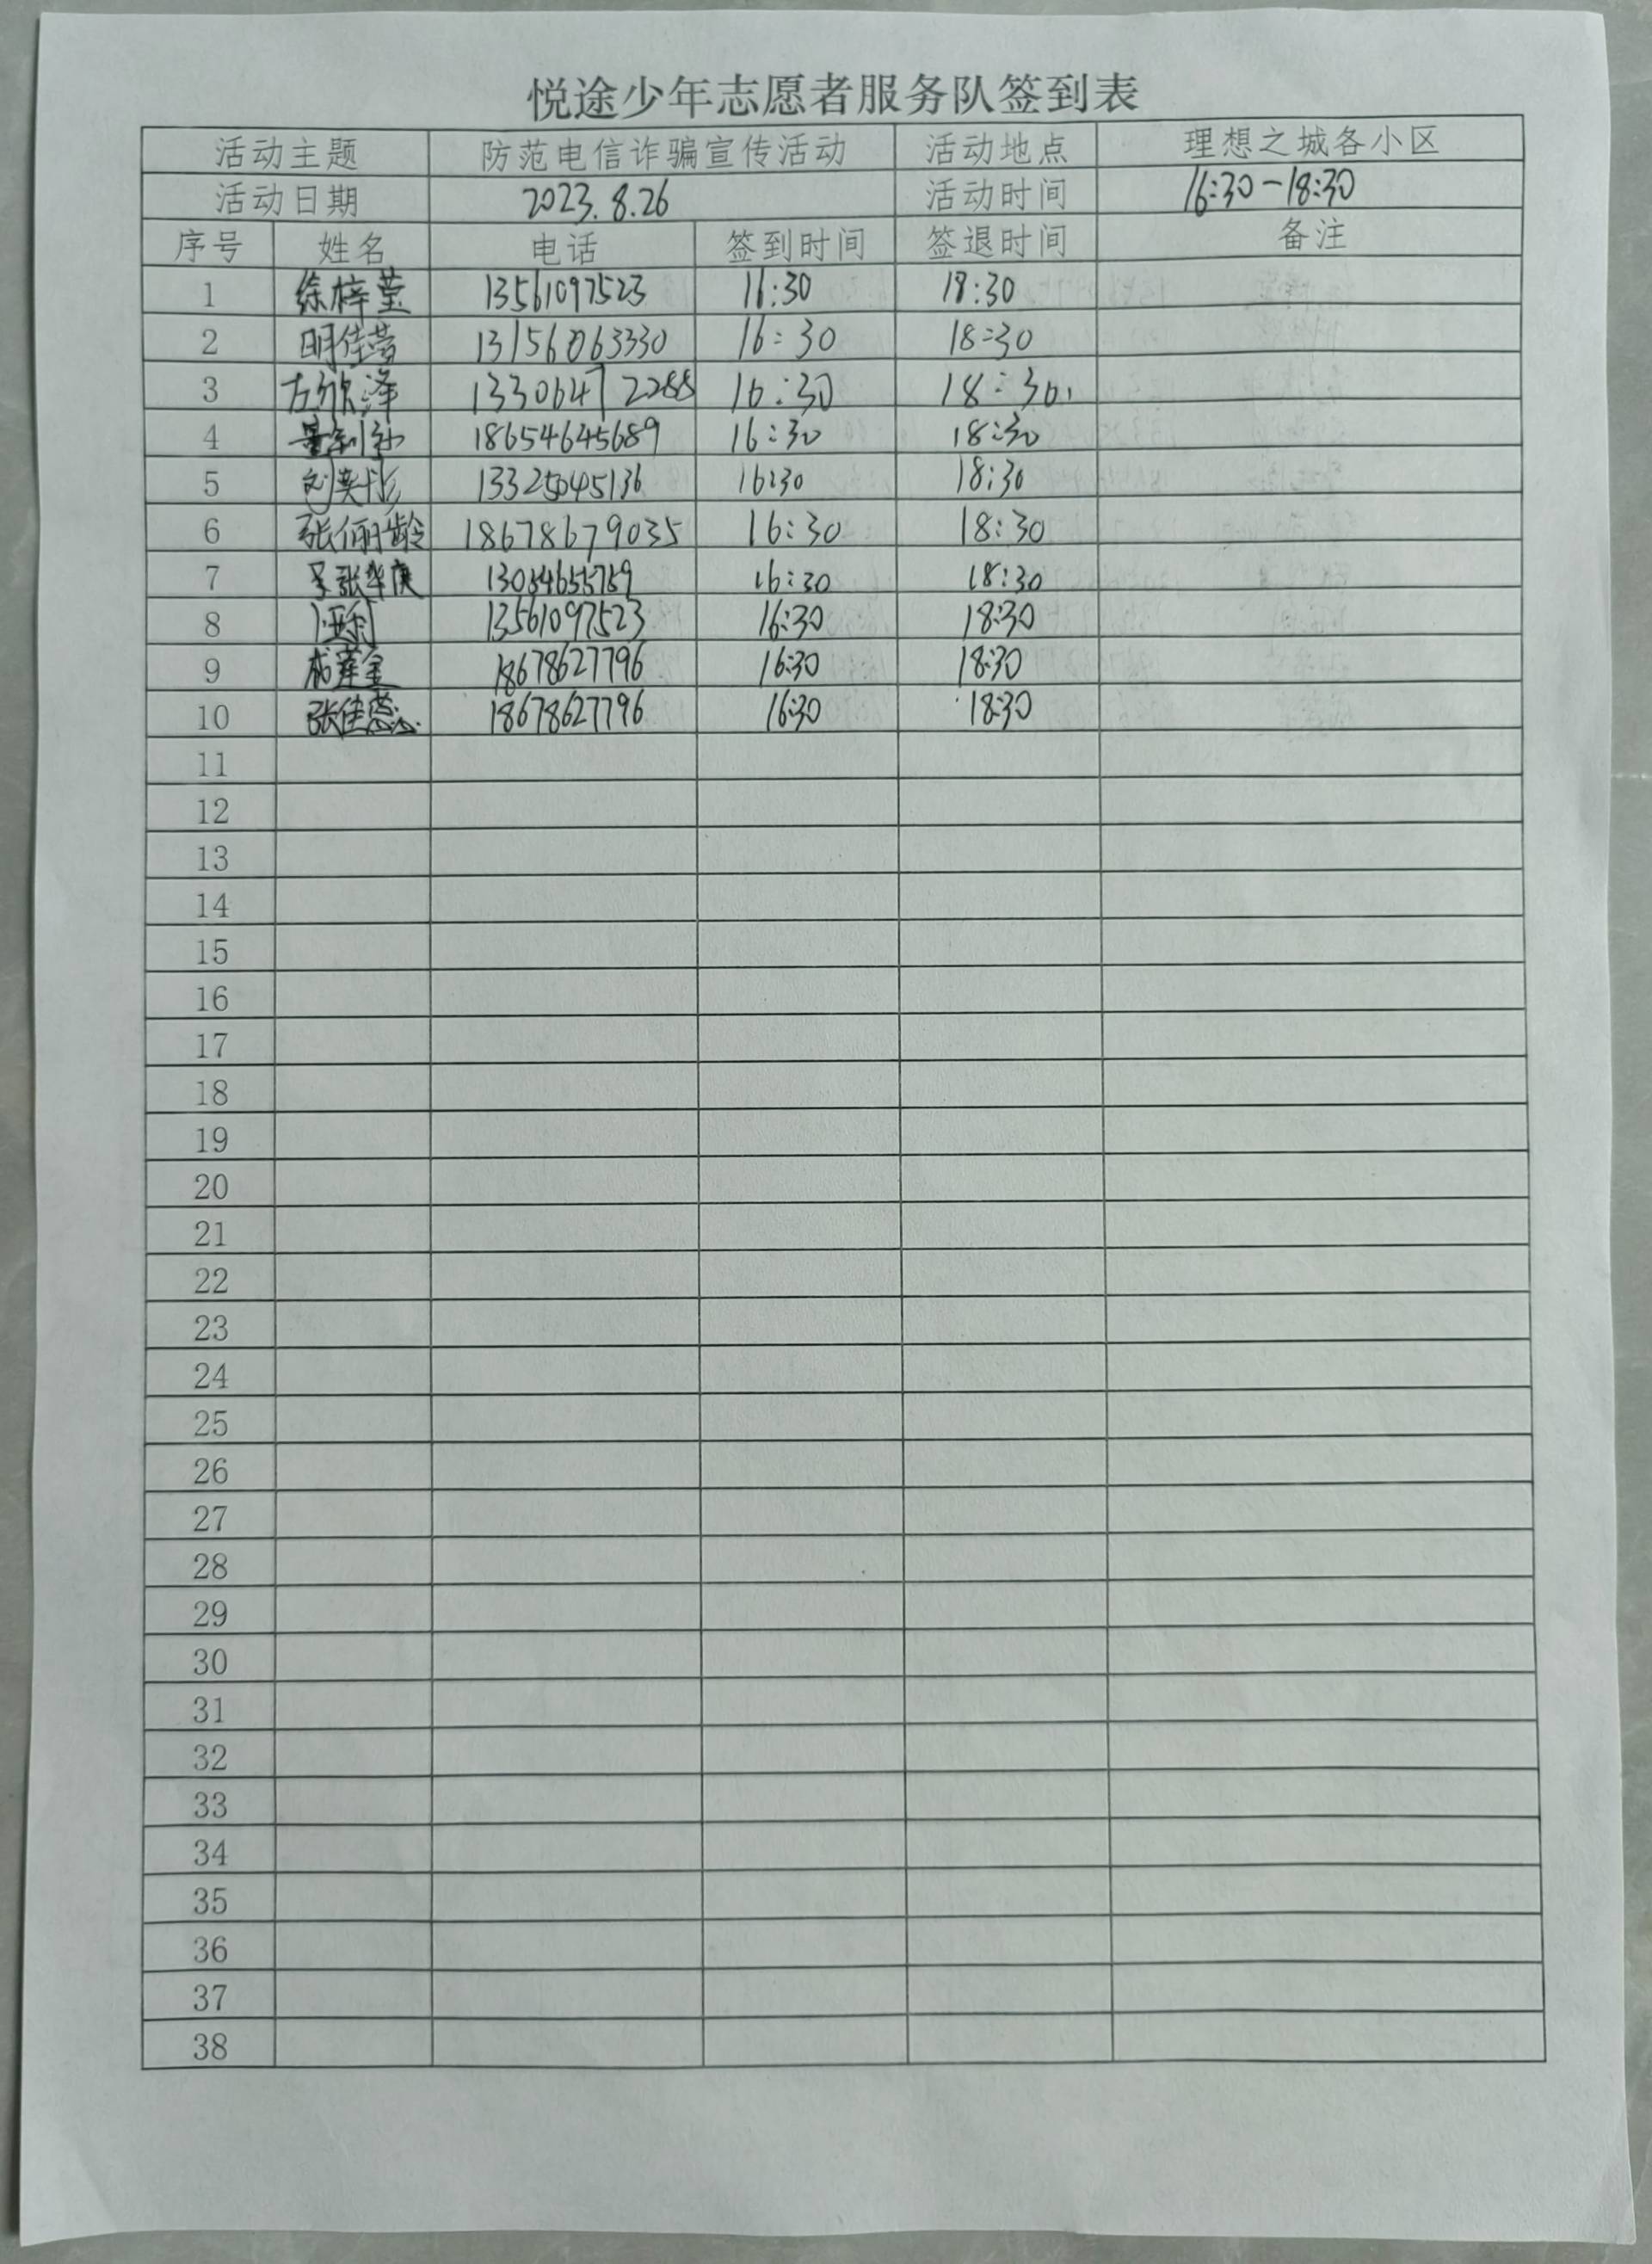 悦途少年志愿者服务队签到表
活动主题 防范电信诈骗宣传活动 活动地点 理想之城各小区
活动日期 2023.8.26 活动时间 16:30-18:30
序号 姓名 电话 签到时间 签退时间 备注
1 徐梓莹 13561097523 16:30 18:30
2 明佳蓉 13156063330 16:30 18:30
3 左欣泽 13306472288 16:30 18:30
4 18654645689 16:30 18:30
5 13325045136 16:30 18:30
6 张俪龄 18678679035 16:30 18:30
7 16:30 18:30
8 13561097523 16:30 18:30
9 18678627796 16:30 18:30
10 张佳蕊 18678627796 16:30 18:30
11
12
13
14
15
16
17
18
19
20
21
22
23
24
25
26
27
28
29
30
31
32
33
34
35
36
37
38